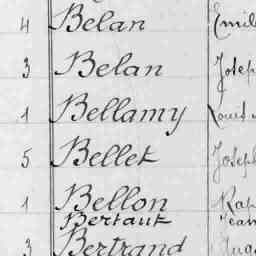 4 Belan Emil
3 Belan Josep
1 Bellamy Louis
5 Bellet Joseph
1 Bellon Rap
Bertaut Jean
3 Bertrand Augu